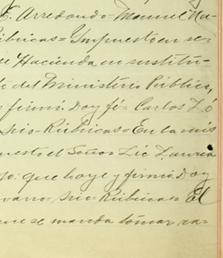 E. Arredondo = Manuel Ru
Rúbricas = Impuesto en se
de Hacienda en sustitu
del Ministerio Público,
firmó Doy fé = Carlos L. O
rio = Rúbricas = En la mis
puesto el Señor Lic.
jo: que hoye y firmó D oy
varro, Srio Rúbricas = El
que se manda tomar ra-